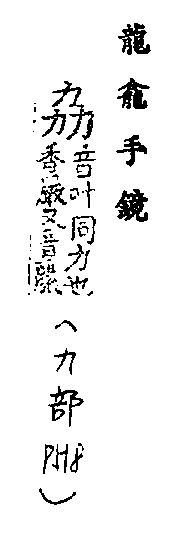 龍龕手鏡
劦音叶同力也
香嚴又音麗
(力部 P518)